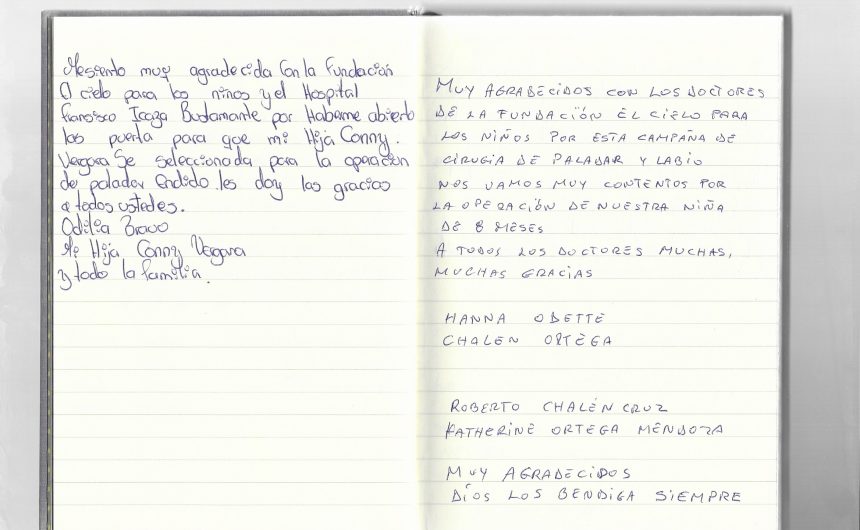 Mesiento muy agradecida Con la Fundación
O cielo para los niños y el Hospital
Francisco Icaza Bustamante por Haberme abierto
las puerta para que mi Hija Conny.
Vergara Se seleccionada para la operación
de paladar Endido les doy las gracias
a todos ustedes.
Odilia Bravo
Mi Hija Conny Vergara
y todo la familia.
MUY AGRADECIDOS CON LOS DOCTORES
DE LA FUNDACIÓN EL CIELO PARA
LOS NIÑOS POR ESTA CAMPAÑA DE
CIRUGIA DE PALADAR Y LABIO
NOS VAMOS MUY CONTENTOS POR
LA OPERACIÓN DE NUESTRA NIÑA
DE 8 MESES
A TODOS LOS DOCTORES MUCHAS,
MUCHAS GRACIAS
HANNA ODETTE
CHALEN ORTEGA
ROBERTO CHALÉN CRUZ
KATHERINE ORTEGA MENDOZA
MUY AGRADECIDOS
DÍOS LOS BENDIGA SIEMPRE